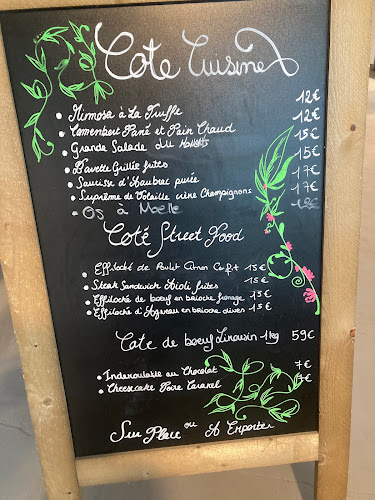 Coté Cuisine
Mimosa à La Truffe 12€
Camembert Pané et Pain Chaud 12€
Grande Salade du 15€
Bavette Grillée frites 15€
Saucisse d'Aubrac purée 17€
Suprême de Volaille crème Champignons 17€
Os à Moelle
Coté Street Food
Effiloché de Poulet Citron Confit 15€
Steak Sandwich Aioli frites 15€
Effiloché de boeuf en brioche fromage 15€
Effiloché d'Agneau en brioche olives 15€
Cote de boeuf Limousin 1kg 59€
Inderoulable au Chocolat 7€
Cheesecake Poire Caramel 7€
Sur Place ou A Emporter